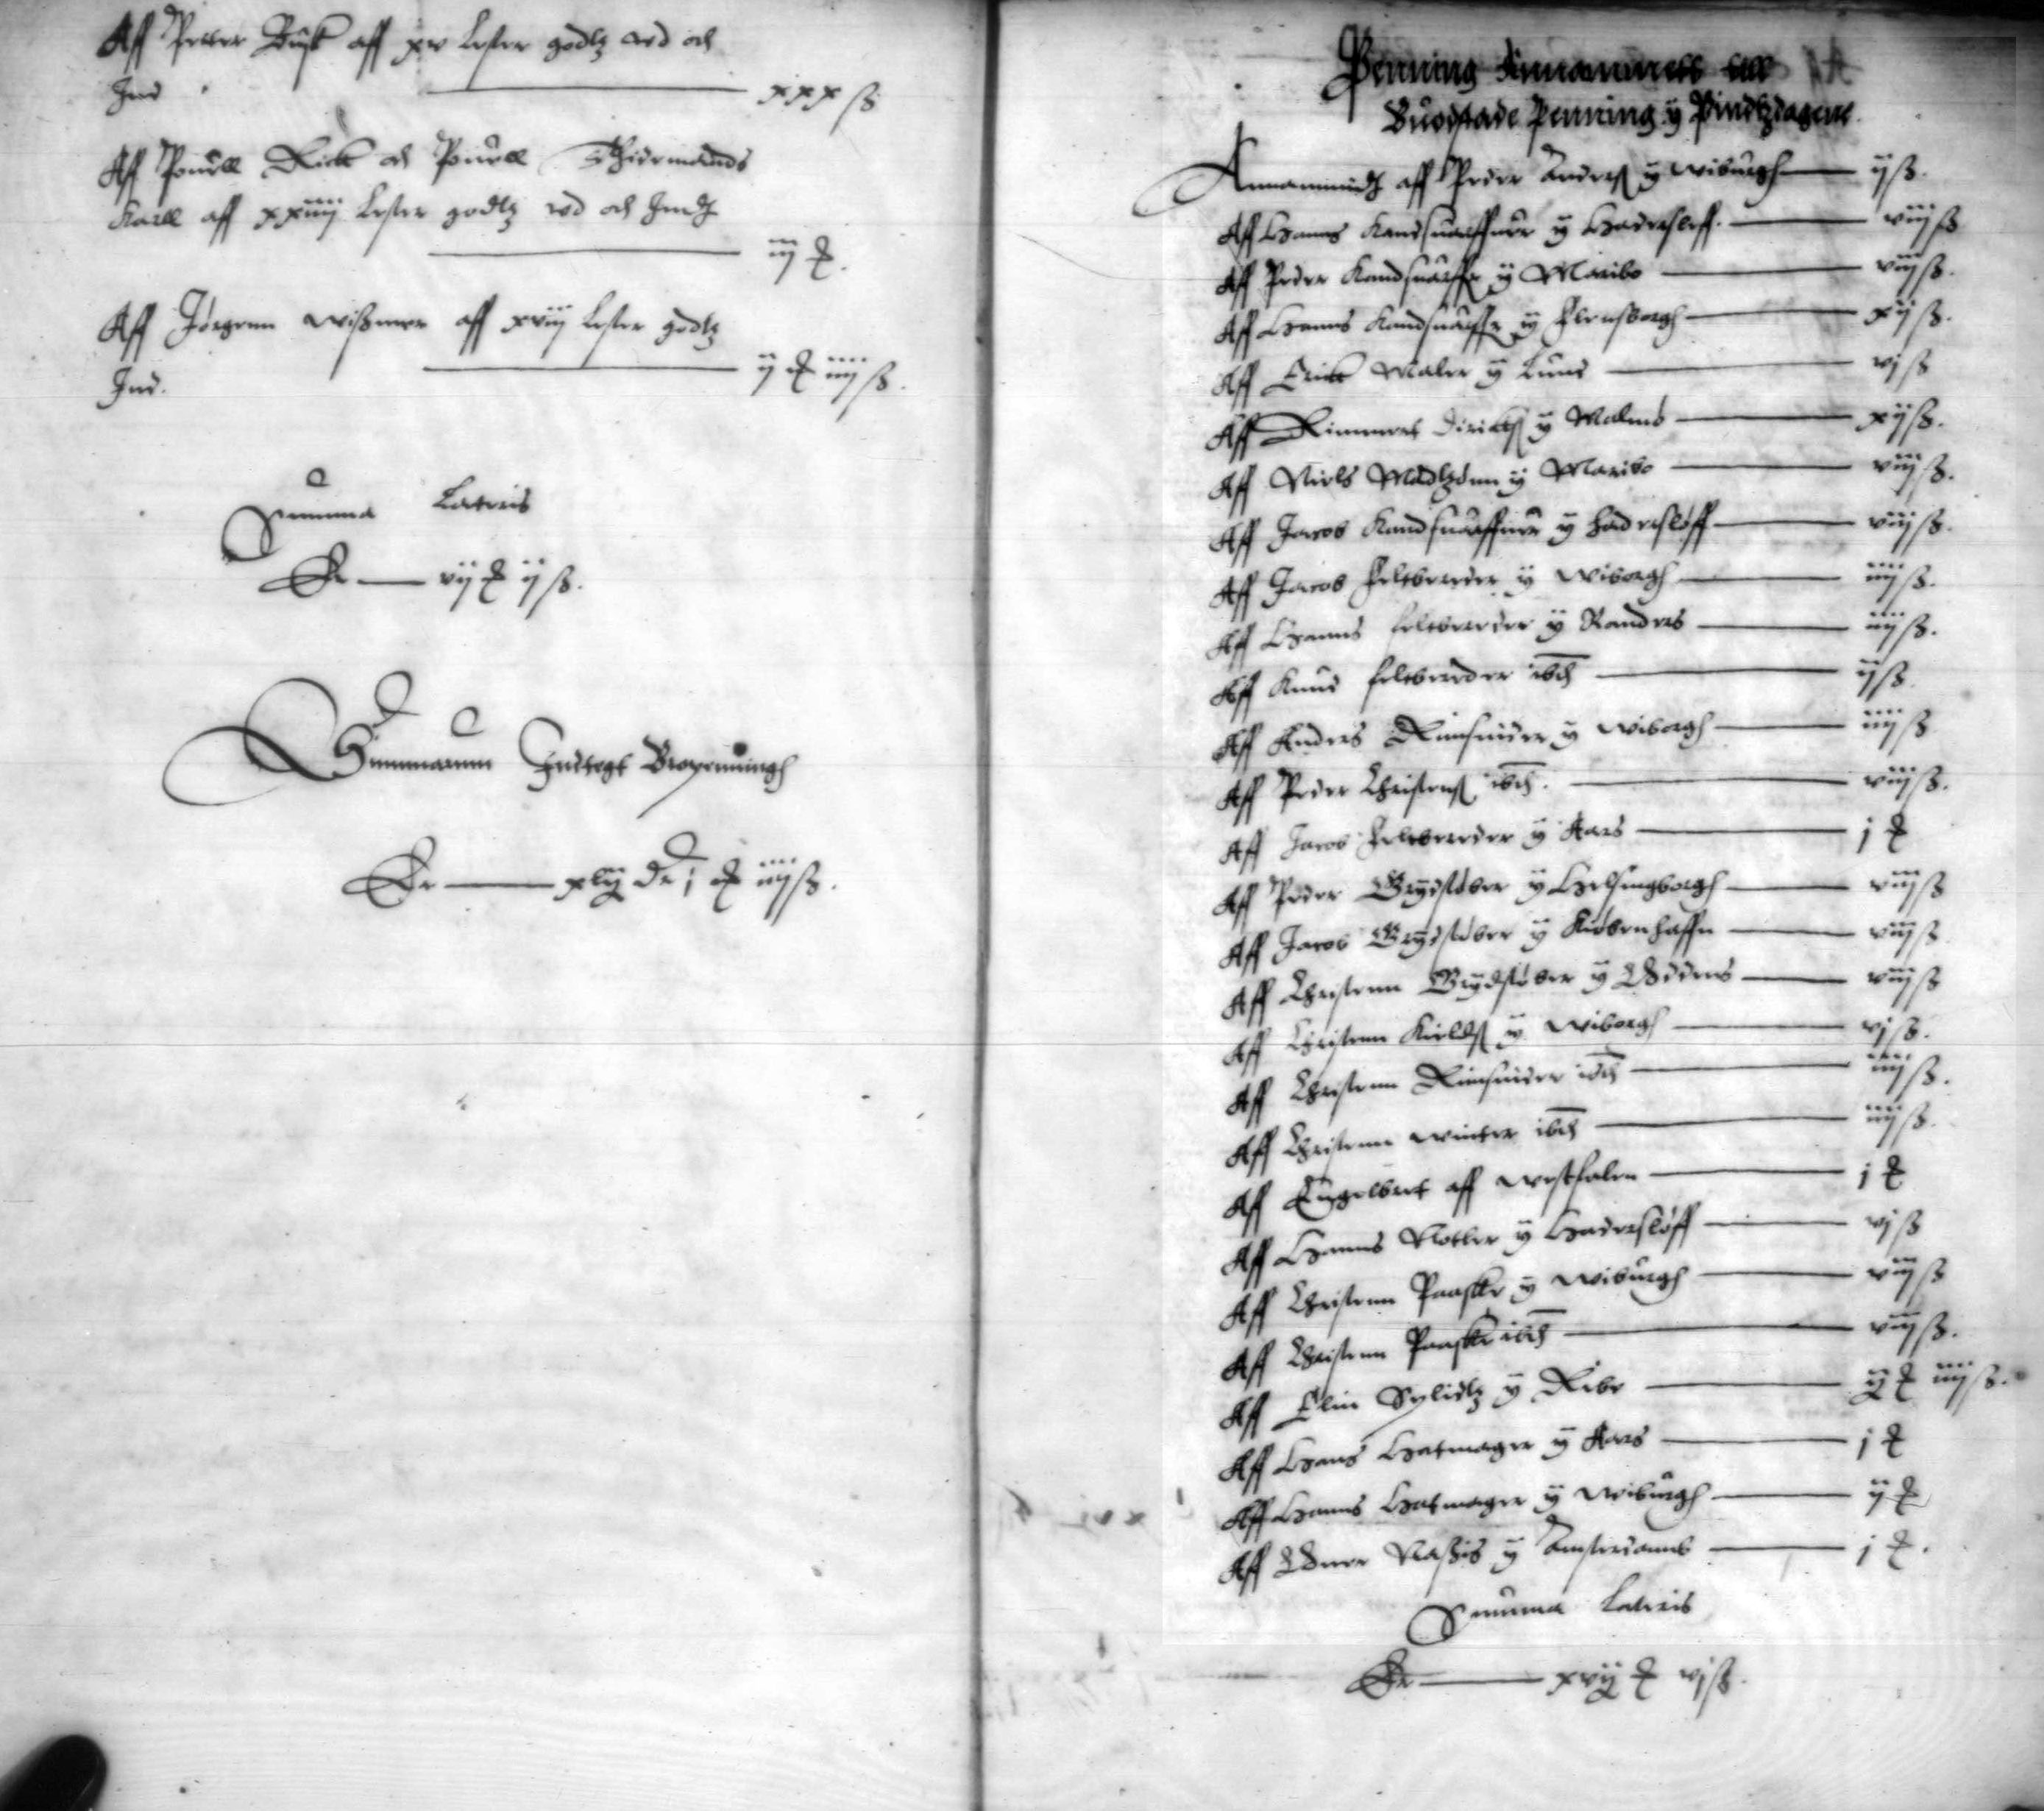 Aff Petter Busk aff xv Lester godtz wd och
Ind ——— xxx ß
Aff Pouell Rick och Pouell Thidemands
Karll aff xxiiij Lester godtz wd och Indt
——— iij ꝶ.
Aff Jørgenn Wißmer aff xviij Lester godtz
Ind. ——— ij ꝶ iiij ß.
Summa Lateris
Er —— vij ꝶ ij ß.
Summarum Indtegt Bropenningh
Er —— xlij dr j ꝶ iiij ß.
Penning Annammett till
Buodstade Penning ÿ Pindtzdagene
Annammidt aff Peder Anders ÿ Wiburgh —— ij ß.
Aff Hanns Kandsuaffuer ÿ Hadersleff. —— viij ß
Aff Peder Kandsuaffr ÿ Maribo —— viij ß.
Aff Hanns Kandsuaffr ÿ Flensborgh —— xij ß.
Aff Erick Maler ÿ Lund —— vj ß
Aff Rimmert Diricks ÿ Malmø —— xij ß.
Aff Niels Madtzønn ÿ Maribo —— viij ß.
Aff Jacob Kandsuaffuer ÿ Hadersløff —— viij ß.
Aff Jacob Feltbereder ÿ Wiborgh —— iiij ß.
Aff Hanns feltbereder ÿ Randers —— iiij ß.
Aff Knud feltbereder ibd —— ij ß.
Aff Anders Remsnider ÿ Wiborgh —— iiij ß
Aff Peder Christens ibd. —— viij ß.
Aff Jacob Feltbereder ÿ Aars —— j ꝶ
Aff Peder Grydstøber ÿ Helsingborgh —— viij ß
Aff Jacob Grydstøber ÿ Kiøbenhaffn —— viij ß
Aff Christenn Grydstøber ÿ Oddens —— viij ß
Aff Christenn Kields ÿ Wiborgh —— vj ß.
Aff Christenn Remsnider ibd —— iiij ß.
Aff Christenn Winter ibd —— iiij ß.
Aff Engelbret aff Westfalen —— j ꝶ
Aff Hanns Notler ÿ Hadersløff —— vj ß
Aff Christenn Paaske ÿ Wiburgh —— viij ß
Aff Christenn Paaske ibd —— viij ß.
Aff Elin ÿ Ribe —— ij ꝶ iiij ß.
Aff Hans Hatmager ÿ Aars —— j ꝶ
Aff Hanns Hatmager ÿ Wiburgh —— ij ꝶ
Aff ÿ Amsterdamb —— j ꝶ.
Summa Lateris
Er —— xvij ꝶ vj ß.